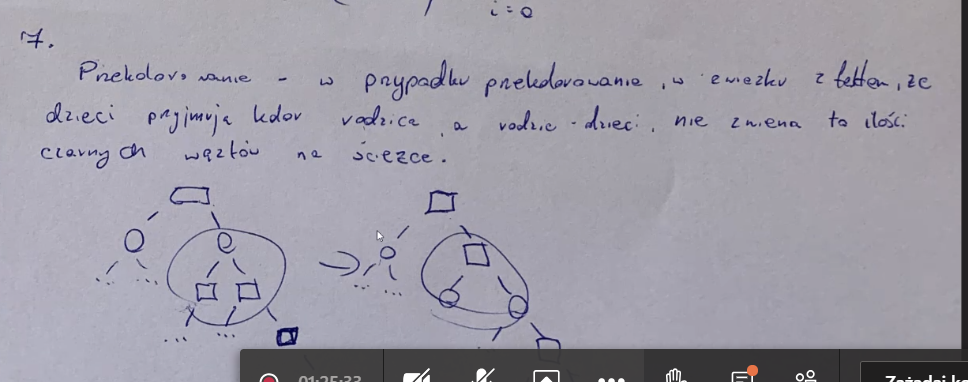 i = 0
7.
Przekolorowanie - w przypadku przekolorowania, w zwiezku z faktem, ze
dzieci przyjmują kolor rodzica, a rodzic - dzieci, nie zmiena to ilości
czarnych węzłów na ściezce.
... ... ... ...
... ...
01:25:33